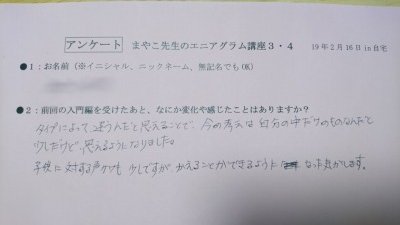 アンケート まやこ先生のエニアグラム講座3・4 19年2月16日in自宅
●1：お名前（※イニシャル、ニックネーム、無記名でもOK）
●2：前回の入門編を受けたあと、なにか変化や感じたことはありますか？
タイプによって、違うんだと思えることで、今の考えは自分の中だけのものなんだと
少しだけど、思えるようになりました。
子供に対する声かけも少しですが、かえることができるようになった気がします。